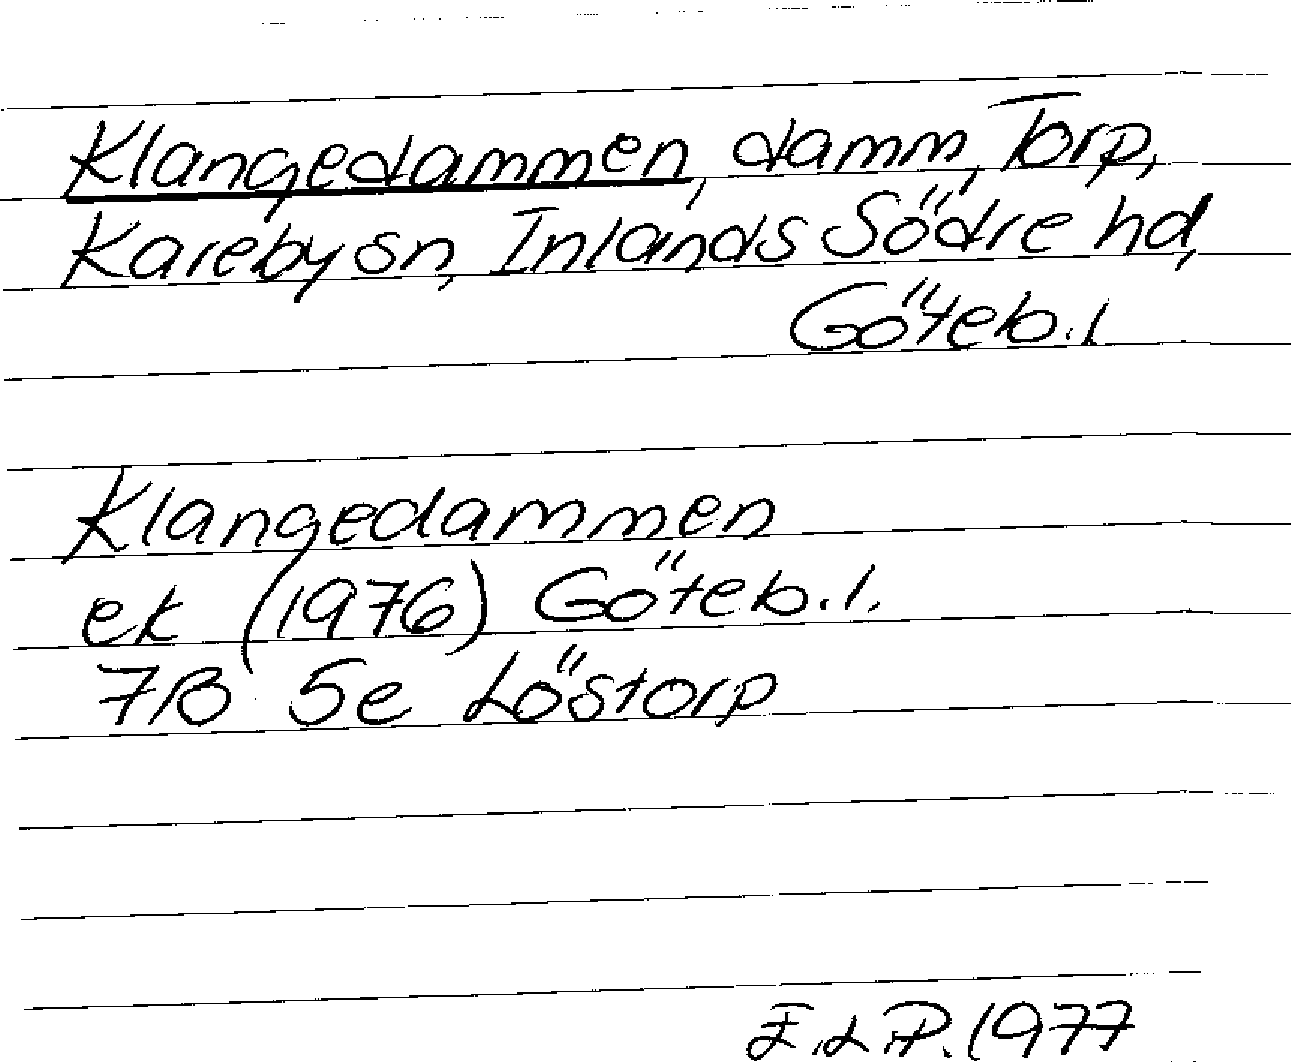 Klangedammen, damm, Torp,
Kareby sn, Inlands Södre hd,
Göteb. l
Klangedammen
ek (1976) Göteb. l.
7B 5e Löstorp
F.L.P. 1977